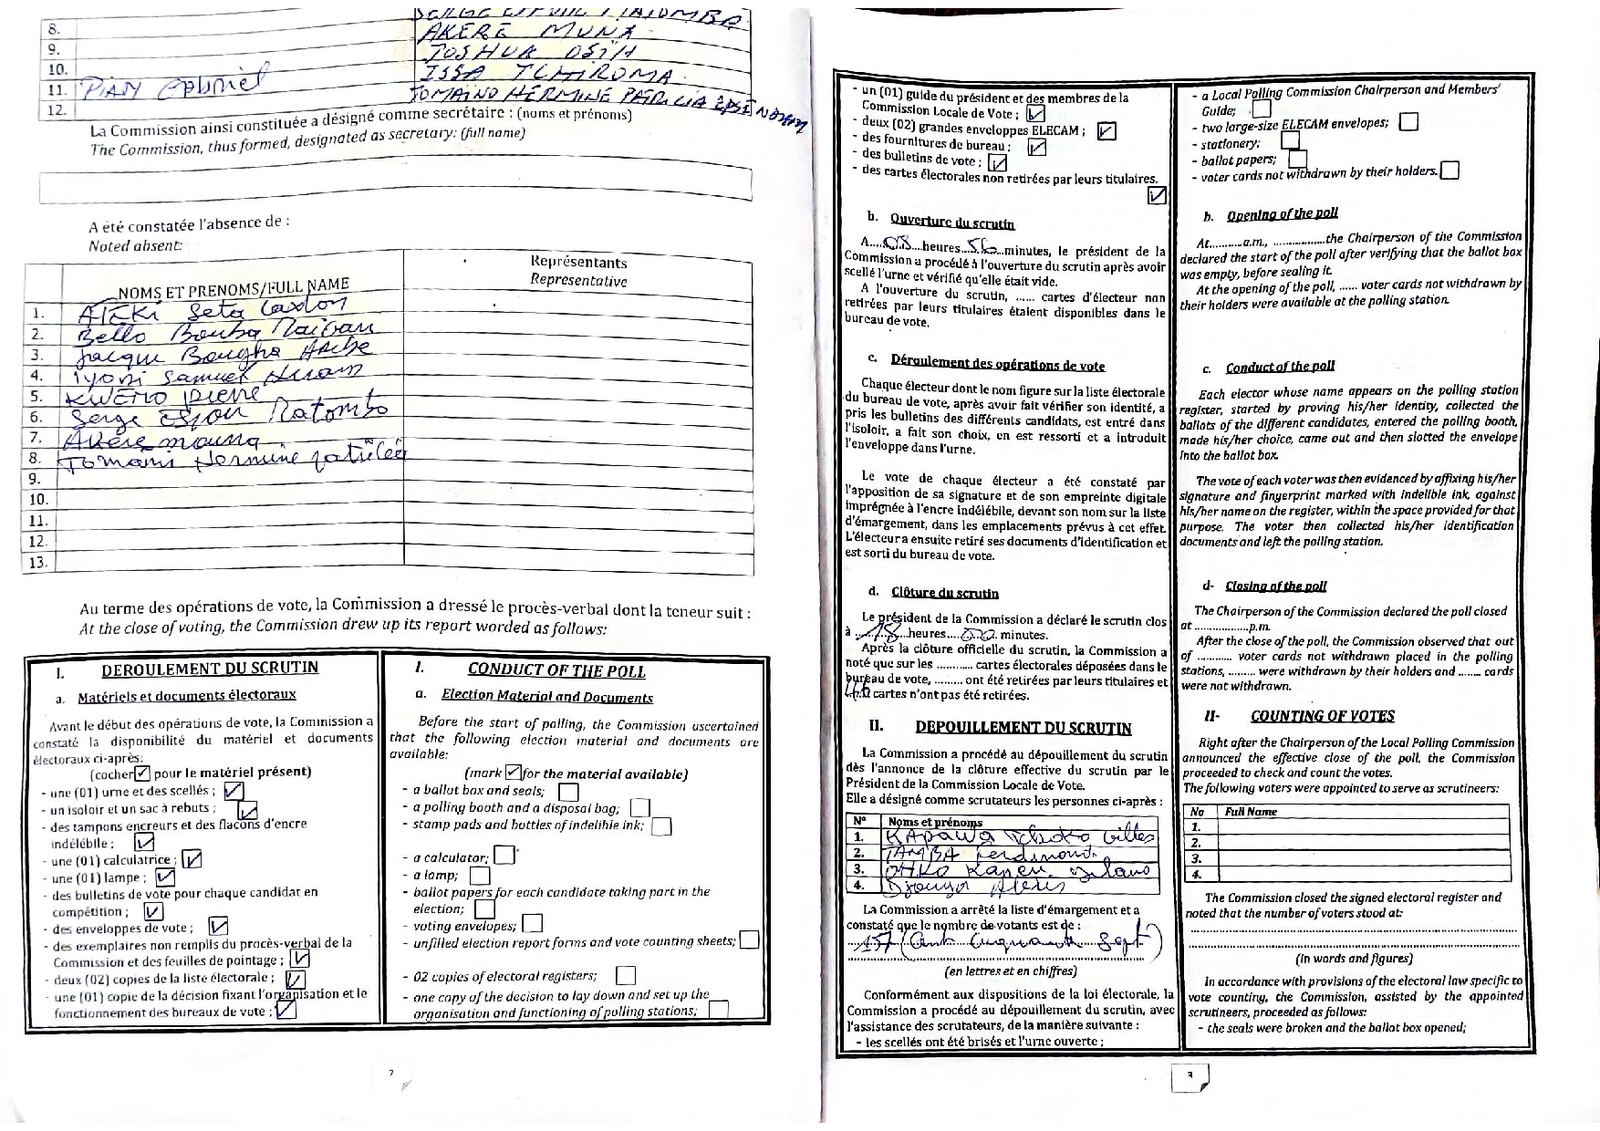 8. SERGE ESPOIR MATOMBA
9. AKERE MUNA
10. JOSHUA OSIH
11. ISSA TCHIROMA
12. TOMAINO HERMINE PATRICIA
La Commission ainsi constituée a désigné comme secrétaire : (noms et prénoms)
The Commission, thus formed, designated as secretary: (full name)
A été constatée l'absence de :
Noted absent:
NOMS ET PRENOMS/FULL NAME
Représentants
Representative
1.
2. Bello Bouba
3.
4. Samuel
5. Pierre
6. Serge Espoir Matomba
7. Akere
8. Hermine
9.
10.
11.
12.
13.
Au terme des opérations de vote, la Commission a dressé le procès-verbal dont la teneur suit :
At the close of voting, the Commission drew up its report worded as follows:
I. DEROULEMENT DU SCRUTIN
a. Matériels et documents électoraux
Avant le début des opérations de vote, la Commission a
constaté la disponibilité du matériel et documents
électoraux ci-après:
(cocher ☑ pour le matériel présent)
- une (01) urne et des scellés ; ☑
- un isoloir et un sac à rebuts ; ☑
- des tampons encreurs et des flacons d'encre
indélébile ; ☑
- une (01) calculatrice ; ☑
- une (01) lampe ; ☑
- des bulletins de vote pour chaque candidat en
compétition ; ☑
- des enveloppes de vote ; ☑
- des exemplaires non remplis du procès-verbal de la
Commission et des feuilles de pointage ; ☑
- deux (02) copies de la liste électorale ; ☑
- une (01) copie de la décision fixant l'organisation et le
fonctionnement des bureaux de vote ; ☑
I. CONDUCT OF THE POLL
a. Election Material and Documents
Before the start of polling, the Commission ascertained
that the following election material and documents are
available:
(mark ☑ for the material available)
- a ballot box and seals; ☐
- a polling booth and a disposal bag; ☐
- stamp pads and bottles of indelible ink; ☐
- a calculator; ☐
- a lamp; ☐
- ballot papers for each candidate taking part in the
election; ☐
- voting envelopes; ☐
- unfilled election report forms and vote counting sheets; ☐
- 02 copies of electoral registers; ☐
- one copy of the decision to lay down and set up the
organisation and functioning of polling stations; ☐
- un (01) guide du président et des membres de la
Commission Locale de Vote ; ☑
- deux (02) grandes enveloppes ELECAM ; ☑
- des fournitures de bureau ; ☑
- des bulletins de vote ; ☑
- des cartes électorales non retirées par leurs titulaires.
☑
b. Ouverture du scrutin
A....08...heures...56...minutes, le président de la
Commission a procédé à l'ouverture du scrutin après avoir
scellé l'urne et vérifié qu'elle était vide.
A l'ouverture du scrutin, ...... cartes d'électeur non
retirées par leurs titulaires étaient disponibles dans le
bureau de vote.
c. Déroulement des opérations de vote
Chaque électeur dont le nom figure sur la liste électorale
du bureau de vote, après avoir fait vérifier son identité, a
pris les bulletins des différents candidats, est entré dans
l'isoloir, a fait son choix, en est ressorti et a introduit
l'enveloppe dans l'urne.
Le vote de chaque électeur a été constaté par
l'apposition de sa signature et de son empreinte digitale
imprégnée à l'encre indélébile, devant son nom sur la liste
d'émargement, dans les emplacements prévus à cet effet.
L'électeur a ensuite retiré ses documents d'identification et
est sorti du bureau de vote.
d. Clôture du scrutin
Le président de la Commission a déclaré le scrutin clos
à ...18...heures...00...minutes.
Après la clôture officielle du scrutin, la Commission a
noté que sur les ........... cartes électorales déposées dans le
bureau de vote, ......... ont été retirées par leurs titulaires et
cartes n'ont pas été retirées.
II. DEPOUILLEMENT DU SCRUTIN
La Commission a procédé au dépouillement du scrutin
dès l'annonce de la clôture effective du scrutin par le
Président de la Commission Locale de Vote.
Elle a désigné comme scrutateurs les personnes ci-après :
N° Noms et prénoms
1. Gilles
2. TAMBA Ferdinand
3.
4.
La Commission a arrêté la liste d'émargement et a
constaté que le nombre de votants est de :
157 (Cent Cinquante Sept)
(en lettres et en chiffres)
Conformément aux dispositions de la loi électorale, la
Commission a procédé au dépouillement du scrutin, avec
l'assistance des scrutateurs, de la manière suivante :
- les scellés ont été brisés et l'urne ouverte ;
- a Local Polling Commission Chairperson and Members'
Guide; ☐
- two large-size ELECAM envelopes; ☐
- stationery; ☐
- ballot papers; ☐
- voter cards not withdrawn by their holders. ☐
b. Opening of the poll
At...........a.m., .................the Chairperson of the Commission
declared the start of the poll after verifying that the ballot box
was empty, before sealing it.
At the opening of the poll, ...... voter cards not withdrawn by
their holders were available at the polling station.
c. Conduct of the poll
Each elector whose name appears on the polling station
register, started by proving his/her identity, collected the
ballots of the different candidates, entered the polling booth,
made his/her choice, came out and then slotted the envelope
into the ballot box.
The vote of each voter was then evidenced by affixing his/her
signature and fingerprint marked with indelible ink, against
his/her name on the register, within the space provided for that
purpose. The voter then collected his/her identification
documents and left the polling station.
d- Closing of the poll
The Chairperson of the Commission declared the poll closed
at .................p.m.
After the close of the poll, the Commission observed that out
of ........... voter cards not withdrawn placed in the polling
stations, ......... were withdrawn by their holders and ....... cards
were not withdrawn.
II- COUNTING OF VOTES
Right after the Chairperson of the Local Polling Commission
announced the effective close of the poll, the Commission
proceeded to check and count the votes.
The following voters were appointed to serve as scrutineers:
No Full Name
1.
2.
3.
4.
The Commission closed the signed electoral register and
noted that the number of voters stood at:
(in words and figures)
In accordance with provisions of the electoral law specific to
vote counting, the Commission, assisted by the appointed
scrutineers, proceeded as follows:
- the seals were broken and the ballot box opened;
2
3